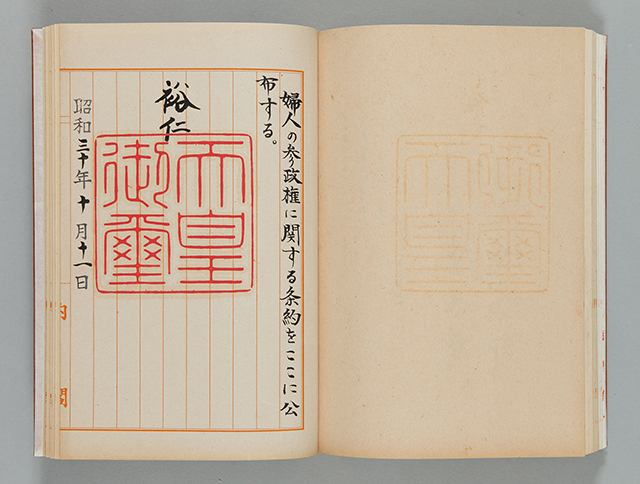 婦人の参政権に関する条約をここに公
布する。
裕仁
天皇
御璽
昭和三十年十月十一日
内閣